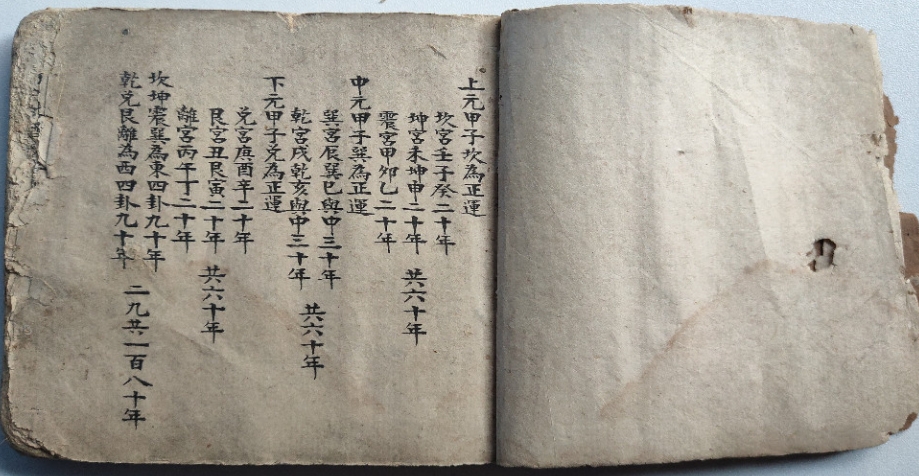 上元甲子坎為正運
坎宮壬子癸二十年
坤宮未坤申二十年
共六十年
震宮甲卯乙二十年
中元甲子巽為正運
巽宮辰巽巳與中三十年
共六十年
乾宮戌乾亥與中三十年
下元甲子兌為正運
兌宮庚酉辛二十年
艮宮丑艮寅二十年
共六十年
離宮丙午丁二十年
坎坤震巽為東四卦九十年
乾兌艮離為西四卦九十年
二九共一百八十年